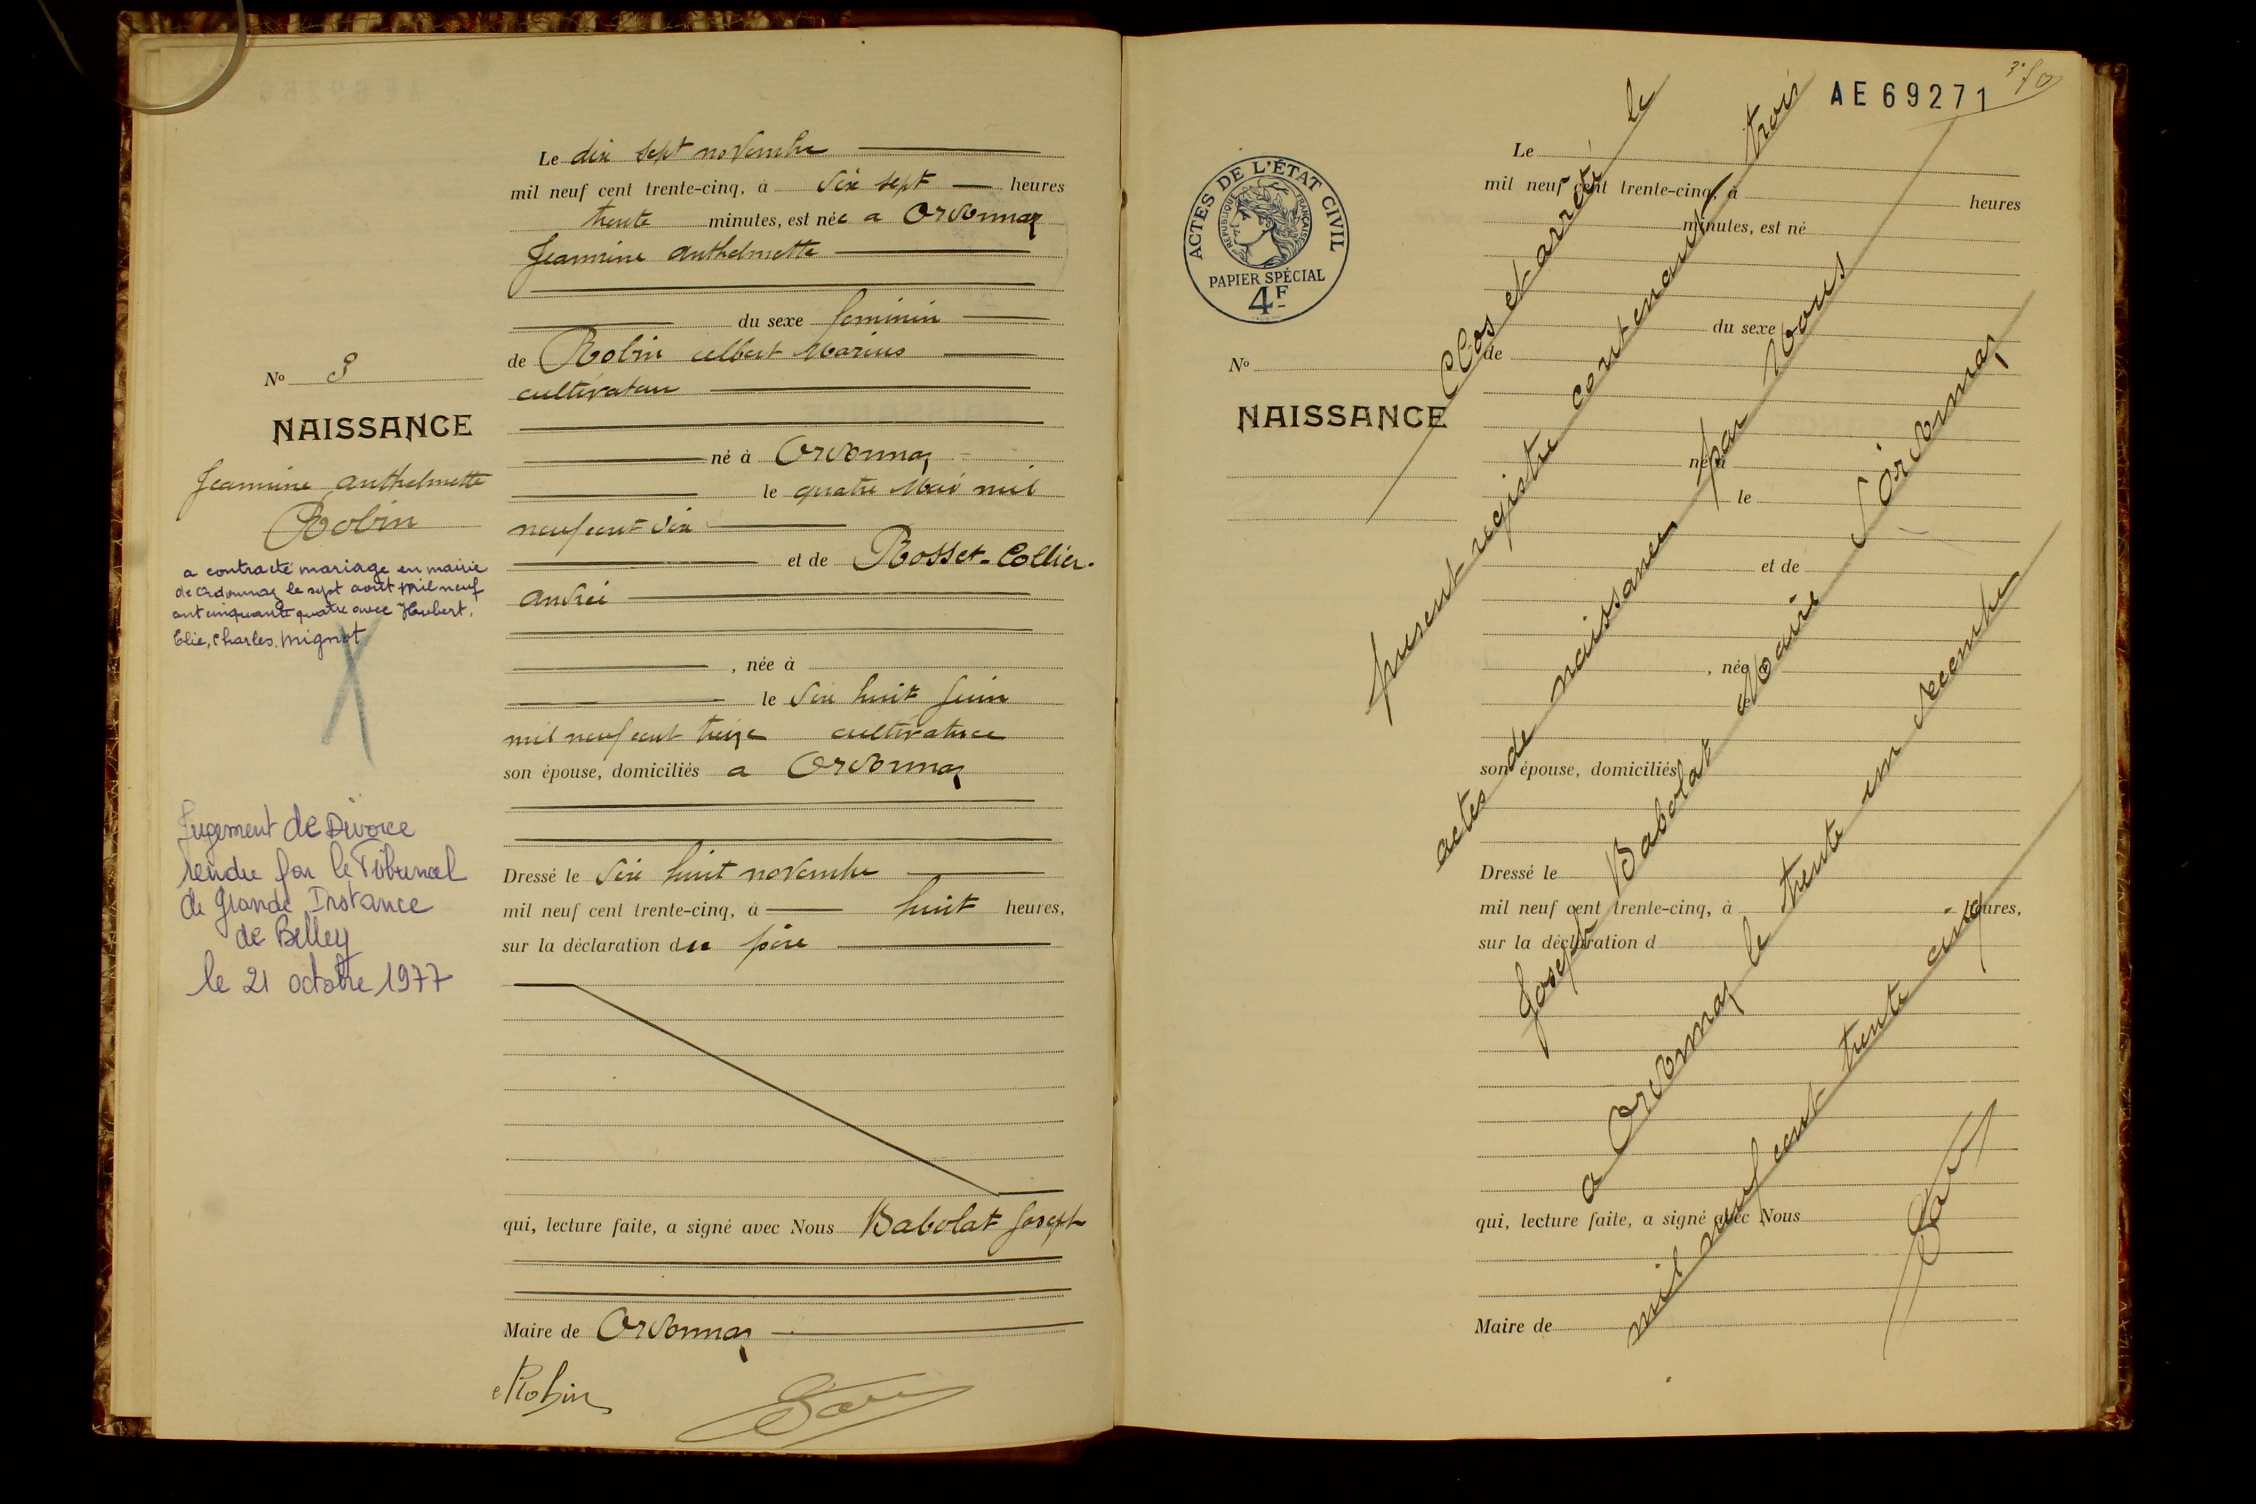 Le dix sept novembre
mil neuf cent trente-cinq, à dix sept heures
trente minutes, est née a Ordonnaz
Jeannine Anthelmette
du sexe feminin
de Robin Albert Marius
cultivateur
né à Ordonnaz
le quatre Mai mil
neuf cent dix
et de Rosset-Collier
Andrée
, née à
le dix huit Juin
mil neuf cent treize cultivatrice
son épouse, domiciliés a Ordonnaz
Dressé le dix huit novembre
mil neuf cent trente-cinq, à huit heures,
sur la déclaration du père
qui, lecture faite, a signé avec Nous Babolat Joseph
Maire de Ordonnaz
Robin
No 3
NAISSANCE
Jeannine Anthelmette
Robin
a contracté mariage en mairie
de Ordonnaz le sept août mil neuf
cent cinquante quatre avec Hubert,
Elie, Charles, Mignot
Jugement de Divorce
rendu par le Tribunal
de Grande Instance
de Belley
le 21 octobre 1977
AE69271
ACTES DE L'ÉTAT CIVIL
RÉPUBLIQUE FRANÇAISE
PAPIER SPÉCIAL
4F
No
NAISSANCE
Le
mil neuf cent trente-cinq, à heures
minutes, est né
du sexe
de
né à
le
et de
, née à
le
son épouse, domiciliés
Dressé le
mil neuf cent trente-cinq, à heures,
sur la déclaration d
qui, lecture faite, a signé avec Nous
Maire de
Clos et arrêté le
présent registre contenant trois
actes de naissances par Nous
Joseph Babolat Maire d'Ordonnaz
a Ordonnaz le trente un decembre
mil neuf cent trente cinq